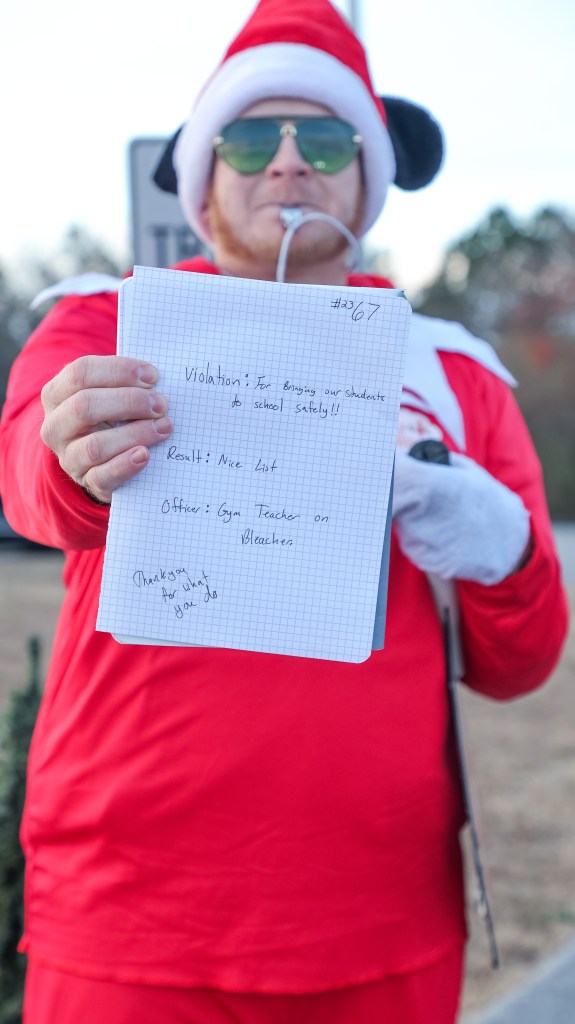 TR
#2367
Violation: For Bringing our students
to school safely!!
Result: Nice List
Officer: Gym Teacher on
Bleacher
Thankyou
for what
you do